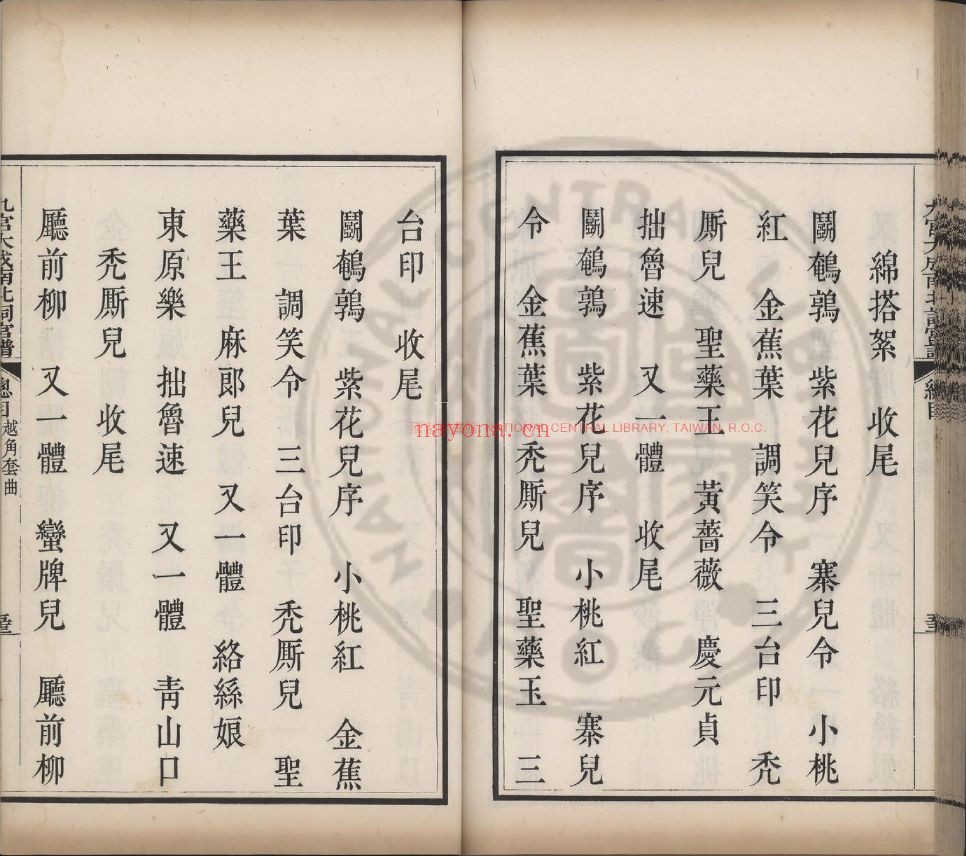 綿搭絮 收尾
鬭鵪鶉 紫花兒序 寨兒令 小桃
紅 金蕉葉 調笑令 三台印 禿
厮兒 聖藥王 黃薔薇 慶元貞
拙魯速 又一體 收尾
鬭鵪鶉 紫花兒序 小桃紅 寨兒
令 金蕉葉 禿厮兒 聖藥王 三
台印 收尾
鬭鵪鶉 紫花兒序 小桃紅 金蕉
葉 調笑令 三台印 禿厮兒 聖
藥王 麻郎兒 又一體 絡絲娘
東原樂 拙魯速 又一體 青山口
禿厮兒 收尾
廳前柳 又一體 蠻牌兒 廳前柳
九宮大成南北詞宮譜 總目 越角套曲
NATIONAL CENTRAL LIBRARY, TAIWAN, R.O.C.
nayona.cn